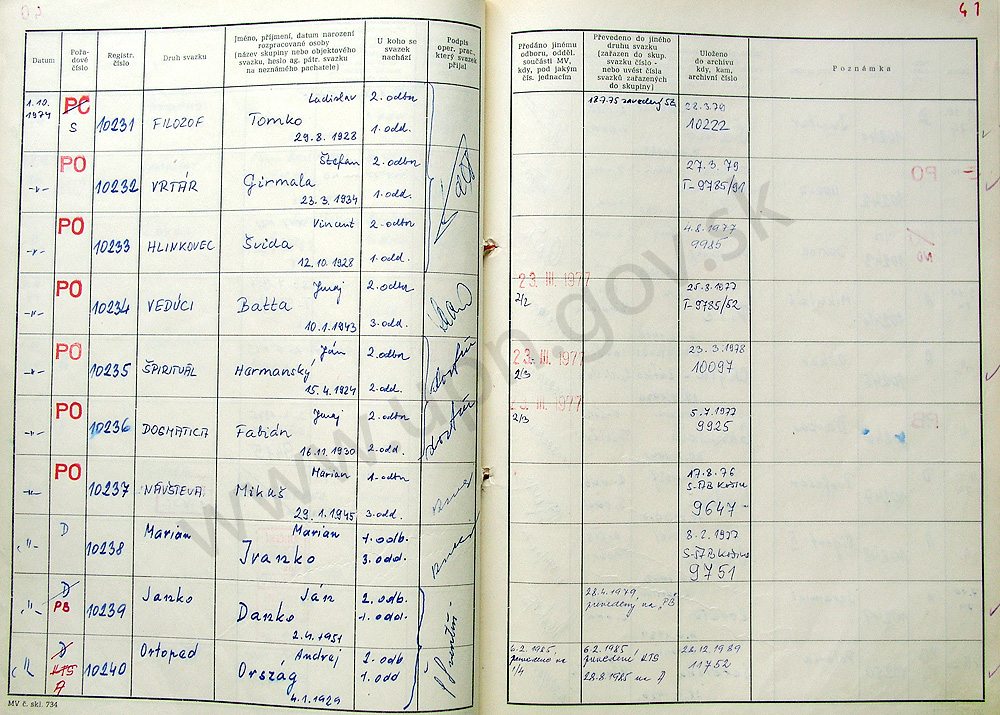 40
41
Datum
Pořadové číslo
Registr. číslo
Druh svazku
Jméno, příjmení, datum narození
rozpracované osoby
(název skupiny nebo objektového
svazku, heslo ag. pátr. svazku
na neznámého pachatele)
U koho se
svazek
nachází
Podpis
oper. prac.,
který svazek
přijal
Předáno jinému
odboru, odděl.
součásti MV,
kdy, pod jakým
čís. jednacím
Převedeno do jiného
druhu svazku
(zařazen do skup.
svazku číslo -
nebo uvést čísla
svazků zařazených
do skupiny)
Uloženo
do archivu
kdy, kam,
archivní číslo
Poznámka
1.10.
1974
PO
S
10231
FILOZOF
Ladislav
Tomko
29.8.1928
2. odbor
1. odd.
18.7.75 zavedený SB
28.3.79
10222
-"-
PO
10232
VRTÁR
Štefan
Girmala
23.3.1934
2. odbor
1. odd.
27.3.79
T-9785/91
-"-
PO
10233
HLINKOVEC
Vincent
Švida
12.10.1928
2. odbor
1. odd.
4.8.1977
9985
-"-
PO
10234
VEDÚCI
Juraj
Batta
10.1.1943
2. odbor
3. odd.
23. III. 1977
2/2
25.8.1977
T-9785/52
-"-
PO
10235
ŠPIRITUÁL
Ján
Harmanský
15.4.1924
2. odbor
2. odd.
23. III. 1977
2/3
23.3.1978
10097
-"-
PO
10236
DOGMATICA
Juraj
Fabián
16.11.1930
2. odbor
2. odd.
23. III. 1977
2/3
5.7.1977
9925
-"-
PO
10237
NÁVŠTEVA
Marian
Mikuš
29.1.1945
1. odbor
3. odd.
17.8.76
S-ŠTB Košice
9647
-"-
D
10238
Marián
Marian
Ivanko
1. odb.
3. odd.
8.2.1977
S-ŠTB Košice
9751
-"-
D
PB
10239
Janko
Ján
Danko
2.4.1951
2. odb.
1. odd.
28.4.1979
prevedený na "PB"
-"-
D
KTS
A
10240
Ortoped
Andrej
Ország
4.1.1929
2. odb
1. odd
6.2.1985,
prevedeno na
1/4
6.2.1985
prevedené KTS
28.8.1985 na A
22.12.1989
11752
MV č. skl. 734
www.upn.gov.sk